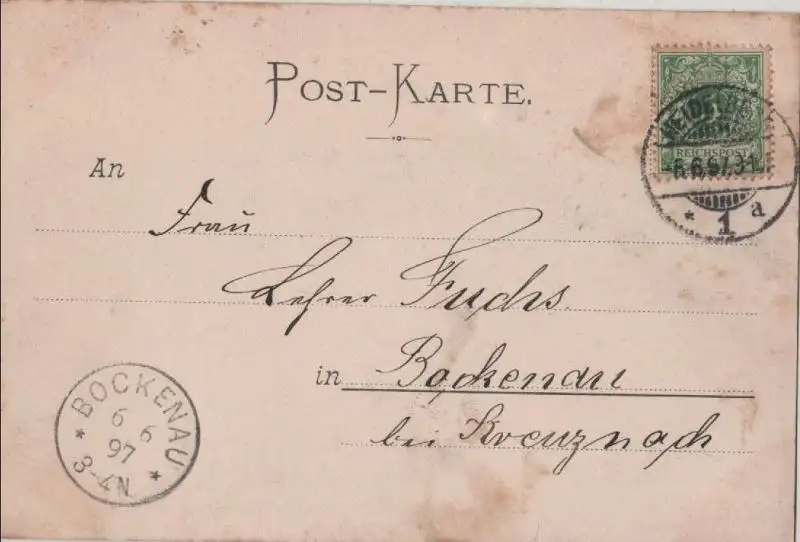 POST-KARTE.
An
Frau
Lehrer Fuchs.
in Bockenau
bei Kreuznach
REICHSPOST
HEIDELBE
6.6.97.
* 1 a
BOCKENAU
6 6
97
* 3-4N. *